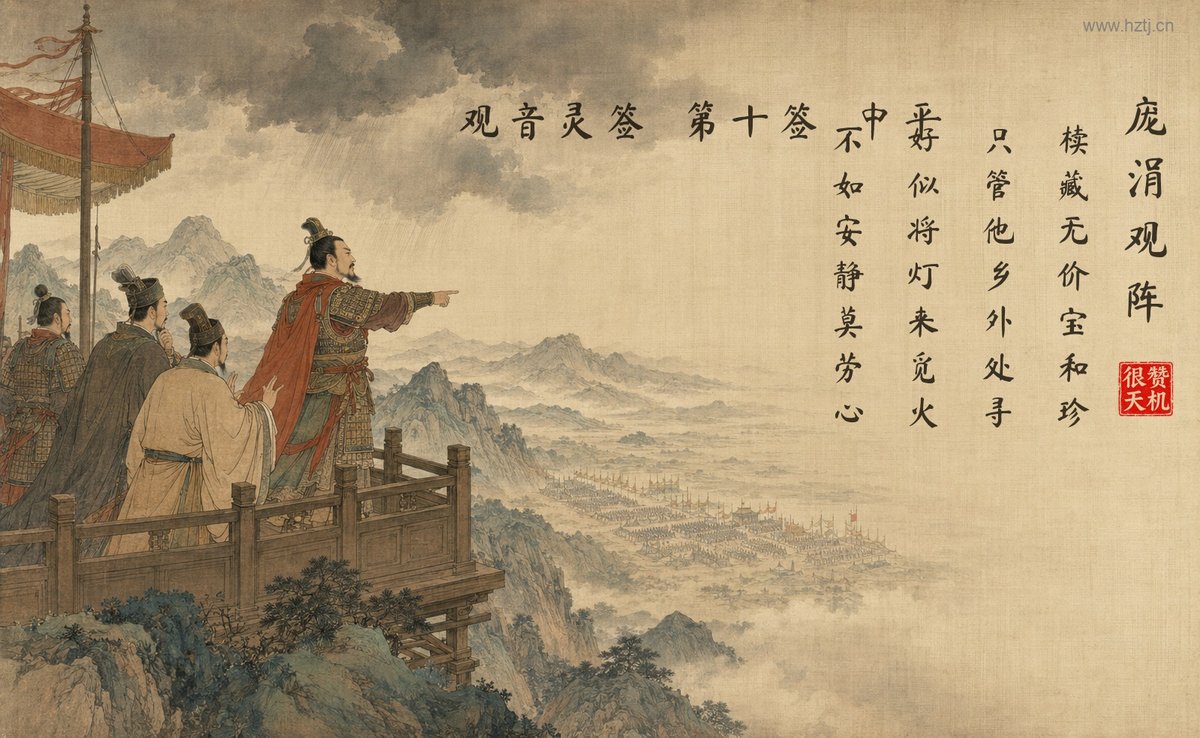 www.hztj.cn
观音灵签 第十签 中平
庞涓观阵
椟藏无价宝和珍
只管他乡外处寻
好似将灯来觅火
不如安静莫劳心
赞机
很天